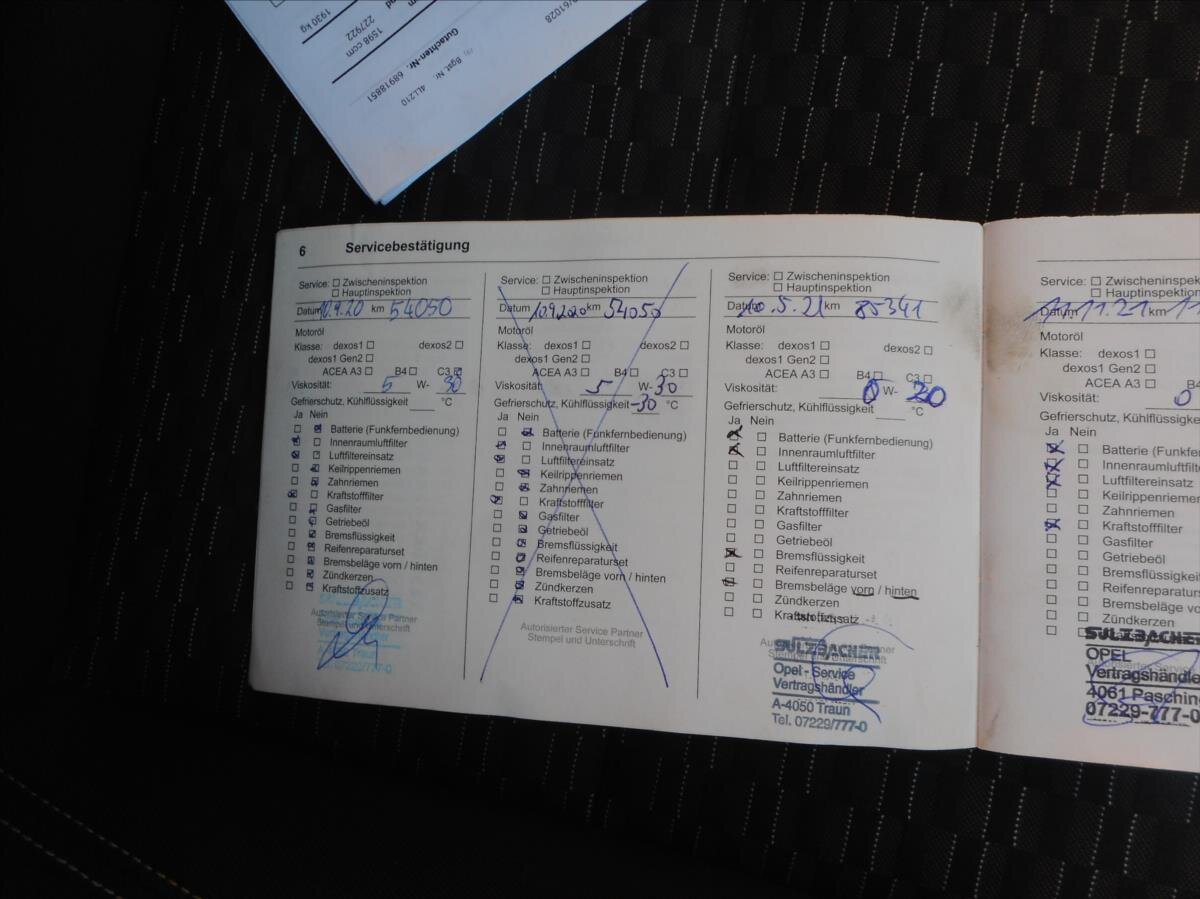 1930 kg
1598 ccm
227922
Gutachten-Nr. 68918851
Bgst. Nr. 4LL210
/61028
6 Servicebestätigung
Service: ☐ Zwischeninspektion
☐ Hauptinspektion
Datum 10.9.20 km 54050
Motoröl
Klasse: dexos1 ☐ dexos2 ☐
dexos1 Gen2 ☐
ACEA A3 ☐ B4 ☐ C3 ☒
Viskosität: 5 W- 30
Gefrierschutz, Kühlflüssigkeit °C
Ja Nein
☐ ☒ Batterie (Funkfernbedienung)
☒ ☐ Innenraumluftfilter
☒ ☐ Luftfiltereinsatz
☐ ☒ Keilrippenriemen
☐ ☒ Zahnriemen
☒ ☐ Kraftstofffilter
☐ ☒ Gasfilter
☐ ☒ Getriebeöl
☐ ☒ Bremsflüssigkeit
☐ ☒ Reifenreparaturset
☐ ☒ Bremsbeläge vorn / hinten
☐ ☒ Zündkerzen
☐ ☒ Kraftstoffzusatz
Autorisierter Service Partner
Stempel und Unterschrift
Service: ☐ Zwischeninspektion
☐ Hauptinspektion
Datum 10.9.2020 km 54050
Motoröl
Klasse: dexos1 ☐ dexos2 ☐
dexos1 Gen2 ☐
ACEA A3 ☐ B4 ☐ C3 ☐
Viskosität: 5 W- 30
Gefrierschutz, Kühlflüssigkeit -30 °C
Ja Nein
☐ ☒ Batterie (Funkfernbedienung)
☒ ☐ Innenraumluftfilter
☒ ☐ Luftfiltereinsatz
☐ ☒ Keilrippenriemen
☐ ☒ Zahnriemen
☒ ☐ Kraftstofffilter
☐ ☒ Gasfilter
☐ ☒ Getriebeöl
☐ ☒ Bremsflüssigkeit
☐ ☒ Reifenreparaturset
☐ ☒ Bremsbeläge vorn / hinten
☐ ☒ Zündkerzen
☐ ☒ Kraftstoffzusatz
Autorisierter Service Partner
Stempel und Unterschrift
Service: ☐ Zwischeninspektion
☐ Hauptinspektion
Datum 10.5.21 85341
Motoröl
Klasse: dexos1 ☐ dexos2 ☐
dexos1 Gen2 ☐
ACEA A3 ☐ B4 ☐ C3 ☐
Viskosität: 0 W- 20
Gefrierschutz, Kühlflüssigkeit °C
Ja Nein
☒ ☐ Batterie (Funkfernbedienung)
☒ ☐ Innenraumluftfilter
☐ ☐ Luftfiltereinsatz
☐ ☐ Keilrippenriemen
☐ ☐ Zahnriemen
☐ ☐ Kraftstofffilter
☐ ☐ Gasfilter
☐ ☐ Getriebeöl
☒ ☐ Bremsflüssigkeit
☐ ☐ Reifenreparaturset
☒ ☐ Bremsbeläge vorn / hinten
☐ ☐ Zündkerzen
☐ ☐ Kraftstoffzusatz
SULZBACHER
Opel - Service
Vertragshändler
A-4050 Traun
Tel. 07229/777-0
Service: ☐ Zwischeninspek
☐ Hauptinspektion
Datum 11.11.21 km
Motoröl
Klasse: dexos1 ☐
dexos1 Gen2 ☐
ACEA A3 ☐
Viskosität: 0
Gefrierschutz, Kühlflüss
Ja Nein
☒ ☐ Batterie (Funkfern
☒ ☐ Innenraumluftfilte
☒ ☐ Luftfiltereinsatz
☐ ☐ Keilrippenriemen
☐ ☐ Zahnriemen
☒ ☐ Kraftstofffilter
☐ ☐ Gasfilter
☐ ☐ Getriebeöl
☐ ☐ Bremsflüssigkeit
☐ ☐ Reifenreparaturs
☐ ☐ Bremsbeläge vorn
☐ ☐ Zündkerzen
SULZBACHER
OPEL
Vertragshändle
4061 Pasching
07229-777-0